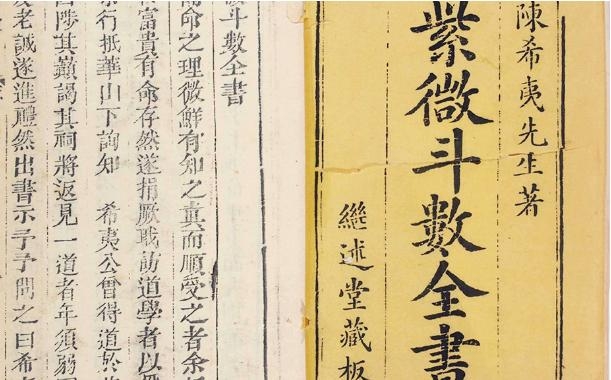 陳希夷先生著
紫微斗數全書
繼述堂藏板
斗數全書
命之理微鮮有知之真而順受之者余
富貴有命存然遂捐厥職訪道學者以
行抵華山下詢知 希夷公曾得道於
陟其巔謁其祠將返見一道者年須弱
老誠遂進禮然出書示予予問之曰希